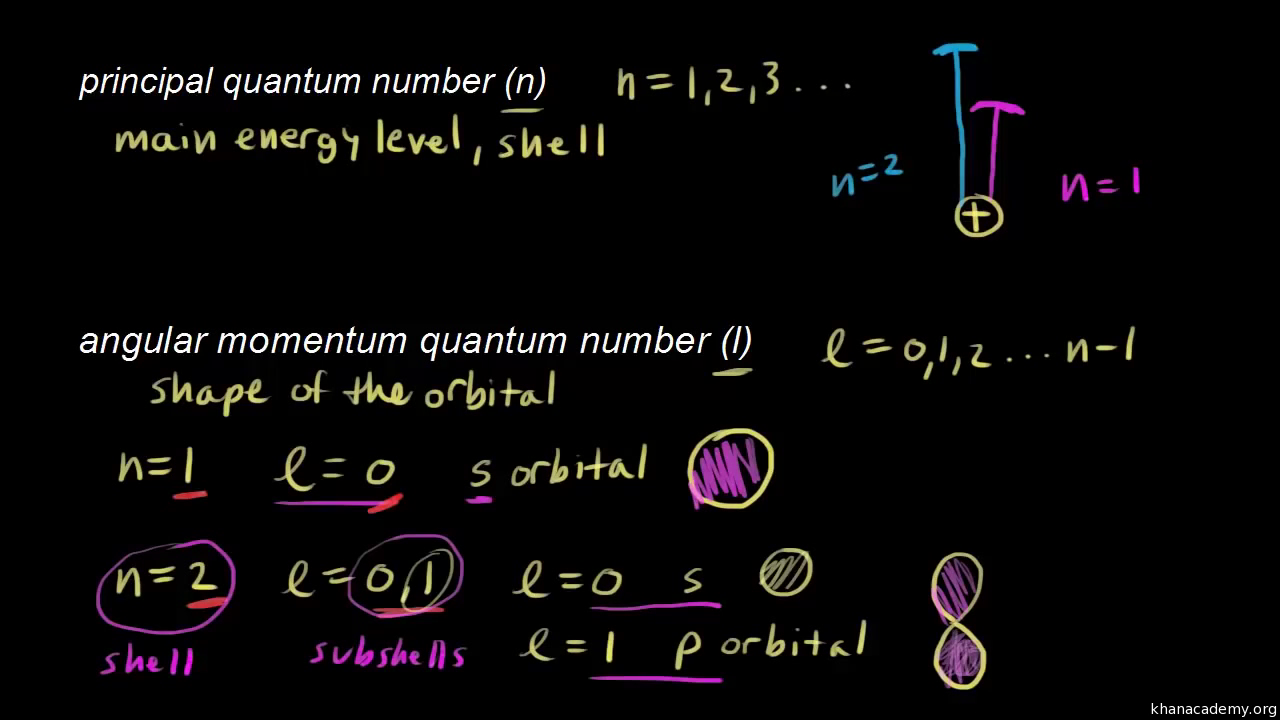 principal quantum number (n) n = 1, 2, 3 ...
main energy level, shell
n=2 n=1
+
angular momentum quantum number (l) l = 0, 1, 2 ... n-1
shape of the orbital
n=1 l=0 s orbital
n=2 l=0,1 l=0 s
shell subshells l=1 p orbital
khanacademy.org